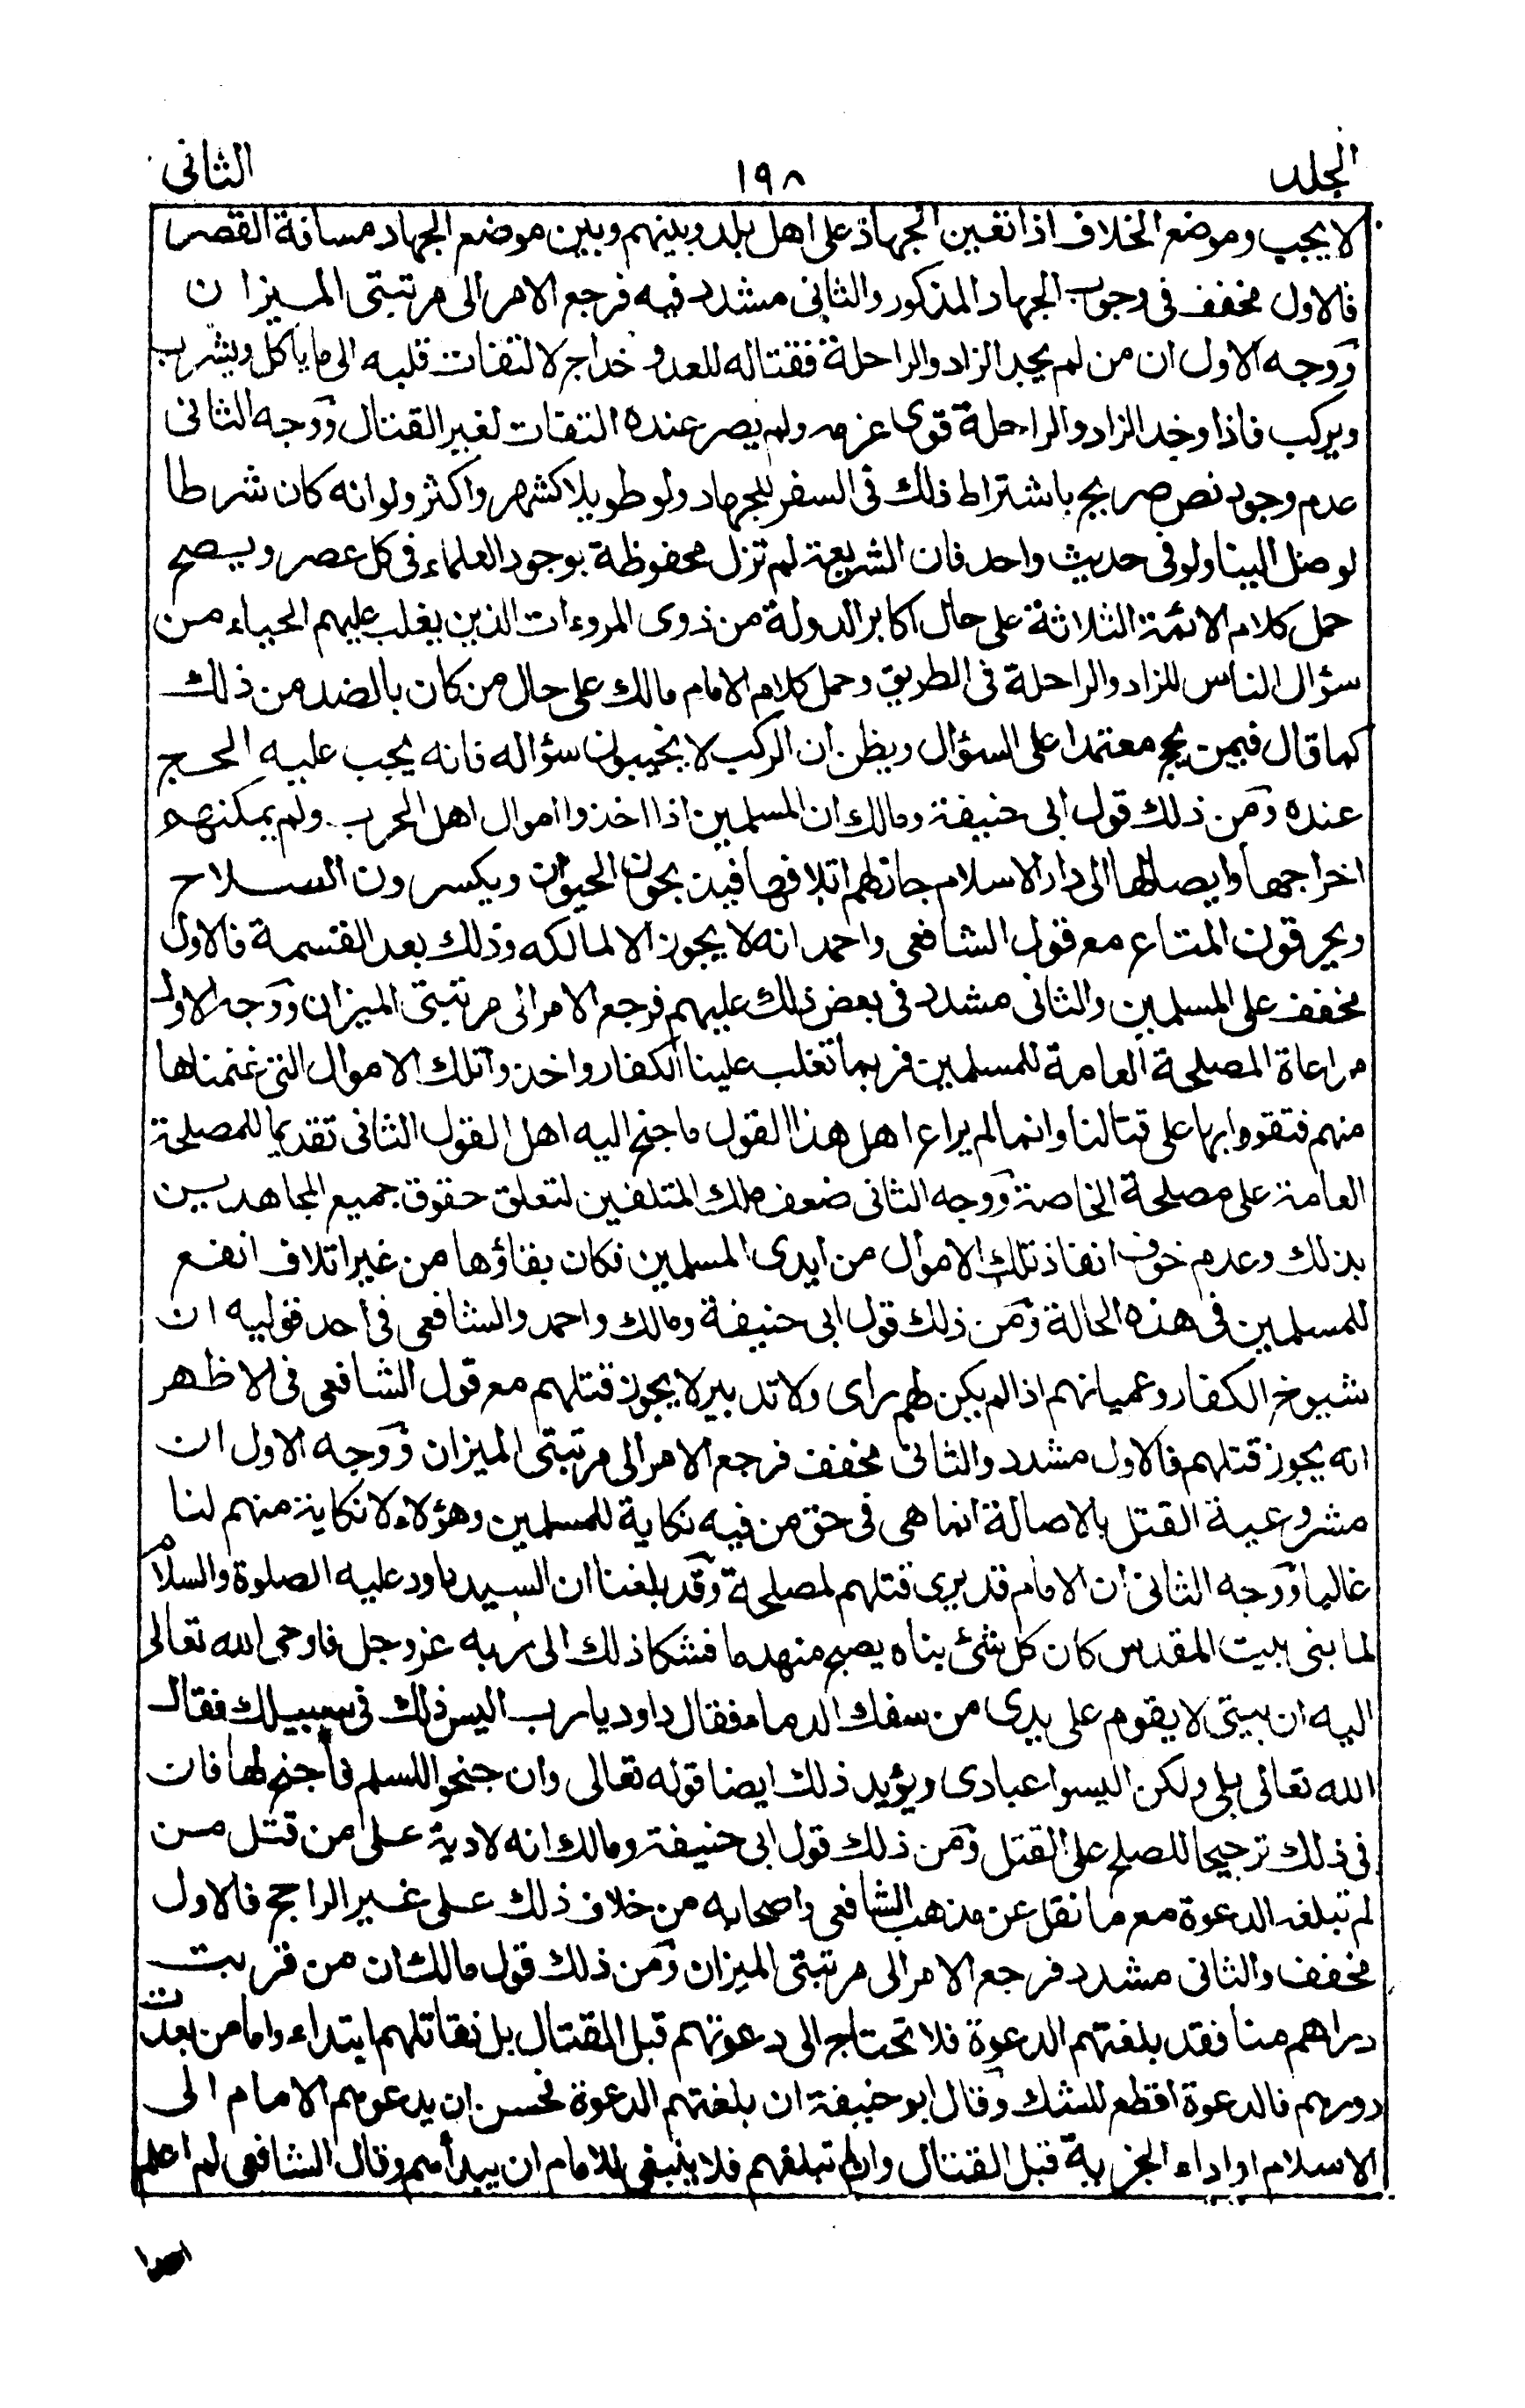 المجلد ١٩٨ الثانى
لا يجب وموضع الخلاف اذا تعين الجهاد على اهل بلد وبينهم وبين موضع الجهاد مسافة القصر
فالاول مخفف فى وجوب الجهاد المذكور والثانى مشدد فيه فرجع الامر الى مرتبتى الميزان
ووجه الاول ان من لم يجد الزاد والراحلة فقتاله للعدو خداج لالتفات قلبه الى ما ياكل ويشرب
ويركب فاذا وجد الزاد والراحلة قوى عزمه ولم يصر عنده التفات لغير القتال ووجه الثانى
عدم وجود نص صريح باشتراط ذلك فى السفر للجهاد ولو طويلا كشهر واكثر ولو انه كان شرطا
لوصل الينا ولو فى حديث واحد فان الشريعة لم تزل محفوظة بوجود العلماء فى كل عصر ويصح
حمل كلام الائمة الثلاثة على حال اكابر الدولة من ذوى المروءات الذين يغلب عليهم الحياء من
سؤال الناس للزاد والراحلة فى الطريق وحمل كلام الامام مالك على حال من كان بالضد من ذلك
كما قال فيمن يحج معتمدا على السؤال ويظن ان الركب لا يخيبون سؤاله فانه يجب عليه الحج
عنده ومن ذلك قول ابى حنيفة ومالك ان المسلمين اذا اخذوا اموال اهل الحرب ولم يمكنهم
اخراجها وايصالها الى دار الاسلام جاز لهم اتلافها فيذبحون الحيوان ويكسرون السلاح
ويحرقون المتاع مع قول الشافعى واحمد انه لا يجوز الا لمالكه وذلك بعد القسمة فالاول
مخفف على المسلمين والثانى مشدد فى بعض ذلك عليهم فرجع الامر الى مرتبتى الميزان ووجه الاول
مراعاة المصلحة العامة للمسلمين فربما تغلب علينا الكفار واخذوا تلك الاموال التى غنمناها
منهم فتقووا بها على قتالنا وانما لم يراع اهل هذا القول ما جنح اليه اهل القول الثانى تقديما للمصلحة
العامة على مصلحة الخاصة ووجه الثانى ضعف ملك المتلفين لتعلق حقوق جميع المجاهدين
بذلك وعدم خوف انفاذ تلك الاموال من ايدى المسلمين فكان بقاؤها من غير اتلاف انفع
للمسلمين فى هذه الحالة ومن ذلك قول ابى حنيفة ومالك واحمد والشافعى فى احد قوليه ان
شيوخ الكفار وعميانهم اذا لم يكن لهم راى ولا تدبير لا يجوز قتلهم مع قول الشافعى فى الاظهر
انه يجوز قتلهم فالاول مشدد والثانى مخفف فرجع الامر الى مرتبتى الميزان ووجه الاول ان
مشروعية القتل بالاصالة انما هى فى حق من فيه نكاية للمسلمين وهؤلاء لا نكاية منهم لنا
غالبا ووجه الثانى ان الامام قد يرى قتلهم لمصلحة وقد بلغنا ان السيد داود عليه الصلوة والسلام
لما بنى بيت المقدس كان كل شئ بناه يصبح منهدما فشكا ذلك الى ربه عز وجل فاوحى الله تعالى
اليه ان بيتى لا يقوم على يدى من سفك الدماء فقال داود يا رب اليس ذلك فى سبيلك فقال
الله تعالى بلى ولكن اليسوا عبادى ويؤيد ذلك ايضا قوله تعالى وان جنحوا للسلم فاجنح لها فان
فى ذلك ترجيحا للصلح على القتل ومن ذلك قول ابى حنيفة ومالك انه لا دية على من قتل من
لم تبلغه الدعوة مع ما نقل عن مذهب الشافعى واصحابه من خلاف ذلك على غير الراجح فالاول
مخفف والثانى مشدد فرجع الامر الى مرتبتى الميزان ومن ذلك قول مالك ان من قربت
دراهم منا فقد بلغتهم الدعوة فلا تحتاج الى دعوتهم قبل القتال بل نقاتلهم ابتداء واما من بعدت
دورهم فالدعوة اقطع للشك وقال ابو حنيفة ان بلغتهم الدعوة فحسن ان يدعوهم الامام الى
الاسلام او اداء الجزية قبل القتال وان لم تبلغهم فلا ينبغى للامام ان يبدأهم وقال الشافعى لم اعلم